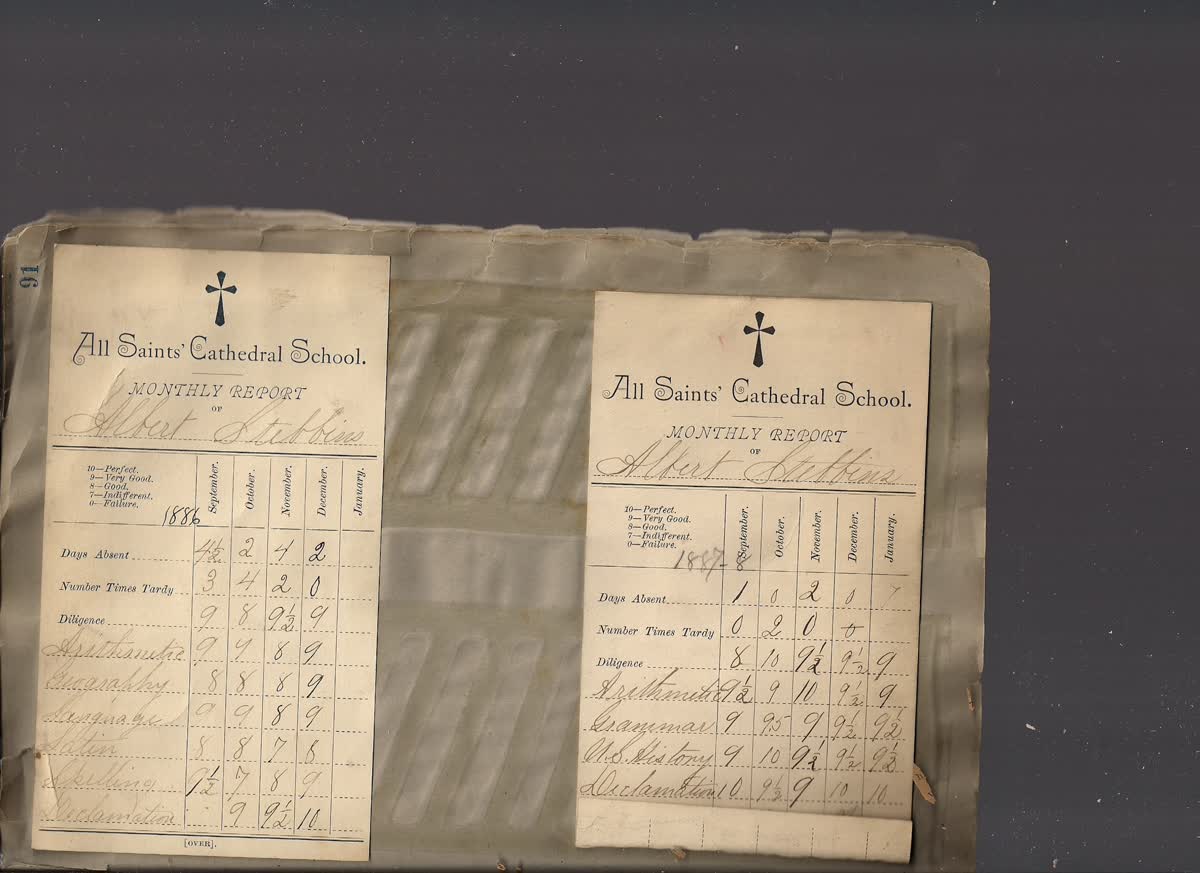 91
All Saints' Cathedral School.
MONTHLY REPORT
OF
Albert Stebbins
10—Perfect.
9—Very Good.
8—Good.
7—Indifferent.
0—Failure.
1886
September. October. November. December. January.
Days Absent 4½ 2 4 2
Number Times Tardy 3 4 2 0
Diligence 9 8 9½ 9
Arithmetic 9 9 8 9
Geography 8 8 8 9
Language 9 9 8 9
Latin 8 8 7 8
Spelling 9½ 7 8 9
Declamation 9 9½ 10
[OVER].
All Saints' Cathedral School.
MONTHLY REPORT
OF
Albert Stebbins
10—Perfect.
9—Very Good.
8—Good.
7—Indifferent.
0—Failure.
1887-8
September. October. November. December. January.
Days Absent 1 0 2 0 7
Number Times Tardy 0 2 0 0
Diligence 8 10 9½ 9½ 9
Arithmetic 9½ 9 10 9½ 9
Grammar 9 9.5 9 9½ 9½
U.S. History 9 10 9½ 9½ 9½
Declamation 10 9½ 9 10 10